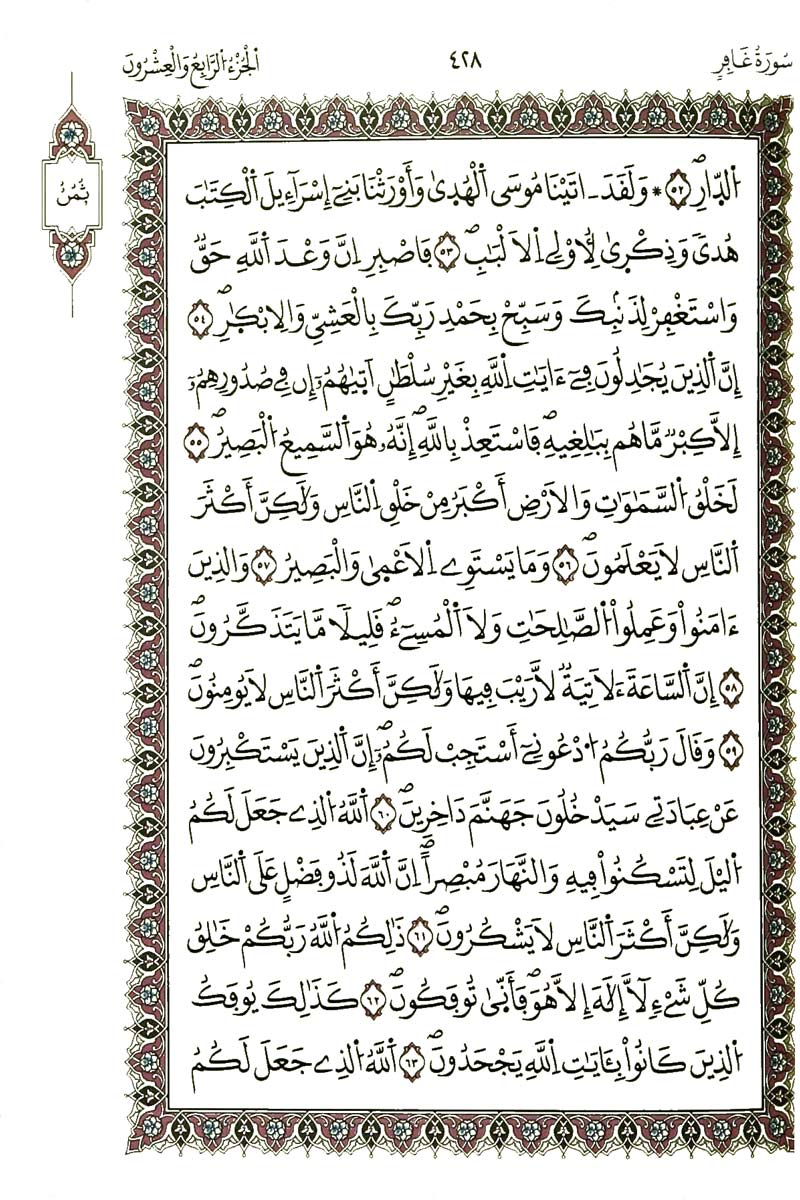 سُورَةُ غَافِرٍ
٤٢٨
اَلْجُزْءُ الرَّابِعُ وَالْعِشْرُونَ
ثُمُنُ
اُ۬لدّ۪ارِۖ ٥٢ * وَلَقَدَ اٰتَيْنَا مُوسَي اَ۬لْهُد۪يٰ وَأَوْرَثْنَا بَنِےٓ إِسْرَآءِيلَ اَ۬لْكِتَٰبَ
هُديٗ وَذِكْر۪يٰ لِأُوْلِے اِ۬لَالْبَٰبِۖ ٥٣ فَاصْبِرِ اِنَّ وَعْدَ اَ۬للَّهِ حَقّٞ
وَاسْتَغْفِرْ لِذَنۢبِكَ وَسَبِّحْ بِحَمْدِ رَبِّكَ بِالْعَشِيِّ وَالِابْكٰ۪رِۖ ٥٤
إِنَّ اَ۬لذِينَ يُجَٰدِلُونَ فِےٓ ءَايَٰتِ اِ۬للَّهِ بِغَيْرِ سُلْطَٰنٍ اَت۪يٰهُمُۥٓ إِن فِے صُدُورِهِمُۥٓ
إِلَّا كِبْرٞ مَّا هُم بِبَٰلِغِيهِۖ فَاسْتَعِذْ بِاللَّهِۖ إِنَّهُۥ هُوَ اَ۬لسَّمِيعُ اُ۬لْبَصِيرُۖ ٥٥
لَخَلْقُ اُ۬لسَّمَٰوَٰتِ وَالَارْضِ أَكْبَرُ مِنْ خَلْقِ اِ۬لنَّاسِ وَلَٰكِنَّ أَكْثَرَ
اَ۬لنَّاسِ لَا يَعْلَمُونَۖ ٥٦ وَمَا يَسْتَوِے اِ۬لَاعْم۪يٰ وَالْبَصِيرُ ٥٧ وَالذِينَ
ءَامَنُواْ وَعَمِلُواْ اُ۬لصَّٰلِحَٰتِ وَلَا اَ۬لْمُسِےٓءُۖ قَلِيلاٗ مَّا يَتَذَكَّرُونَۖ
٥٨ إِنَّ اَ۬لسَّاعَةَ ءَلَاتِيَةٞ لَّا رَيْبَ فِيهَا وَلَٰكِنَّ أَكْثَرَ اَ۬لنَّاسِ لَا يُومِنُونَۖ
٥٩ وَقَالَ رَبُّكُمُ اُ۟دْعُونِےٓ أَسْتَجِبْ لَكُمُۥٓۖ إِنَّ اَ۬لذِينَ يَسْتَكْبِرُونَ
عَنْ عِبَادَتِے سَيَدْخُلُونَ جَهَنَّمَ دَاخِرِينَۖ ٦٠ اَ۬للَّهُ اُ۬لذِے جَعَلَ لَكُمُ
اُ۬ليْلَ لِتَسْكُنُواْ فِيهِ وَالنَّهَارَ مُبْصِراًۖ اِنَّ اَ۬للَّهَ لَذُو فَضْلٍ عَلَي اَ۬لنَّاسِ
وَلَٰكِنَّ أَكْثَرَ اَ۬لنَّاسِ لَا يَشْكُرُونَۖ ٦١ ذَٰلِكُمُ اُ۬للَّهُ رَبُّكُمْ خَٰلِقُ
كُلِّ شَےْءٖ لَّآ إِلَٰهَ إِلَّا هُوَۖ فَأَنّ۪يٰ تُوفَكُونَۖ ٦٢ كَذَٰلِكَ يُوفَكُ
اُ۬لذِينَ كَانُواْ بِـَٔايَٰتِ اِ۬للَّهِ يَجْحَدُونَۖ ٦٣ اَ۬للَّهُ اُ۬لذِے جَعَلَ لَكُمُ